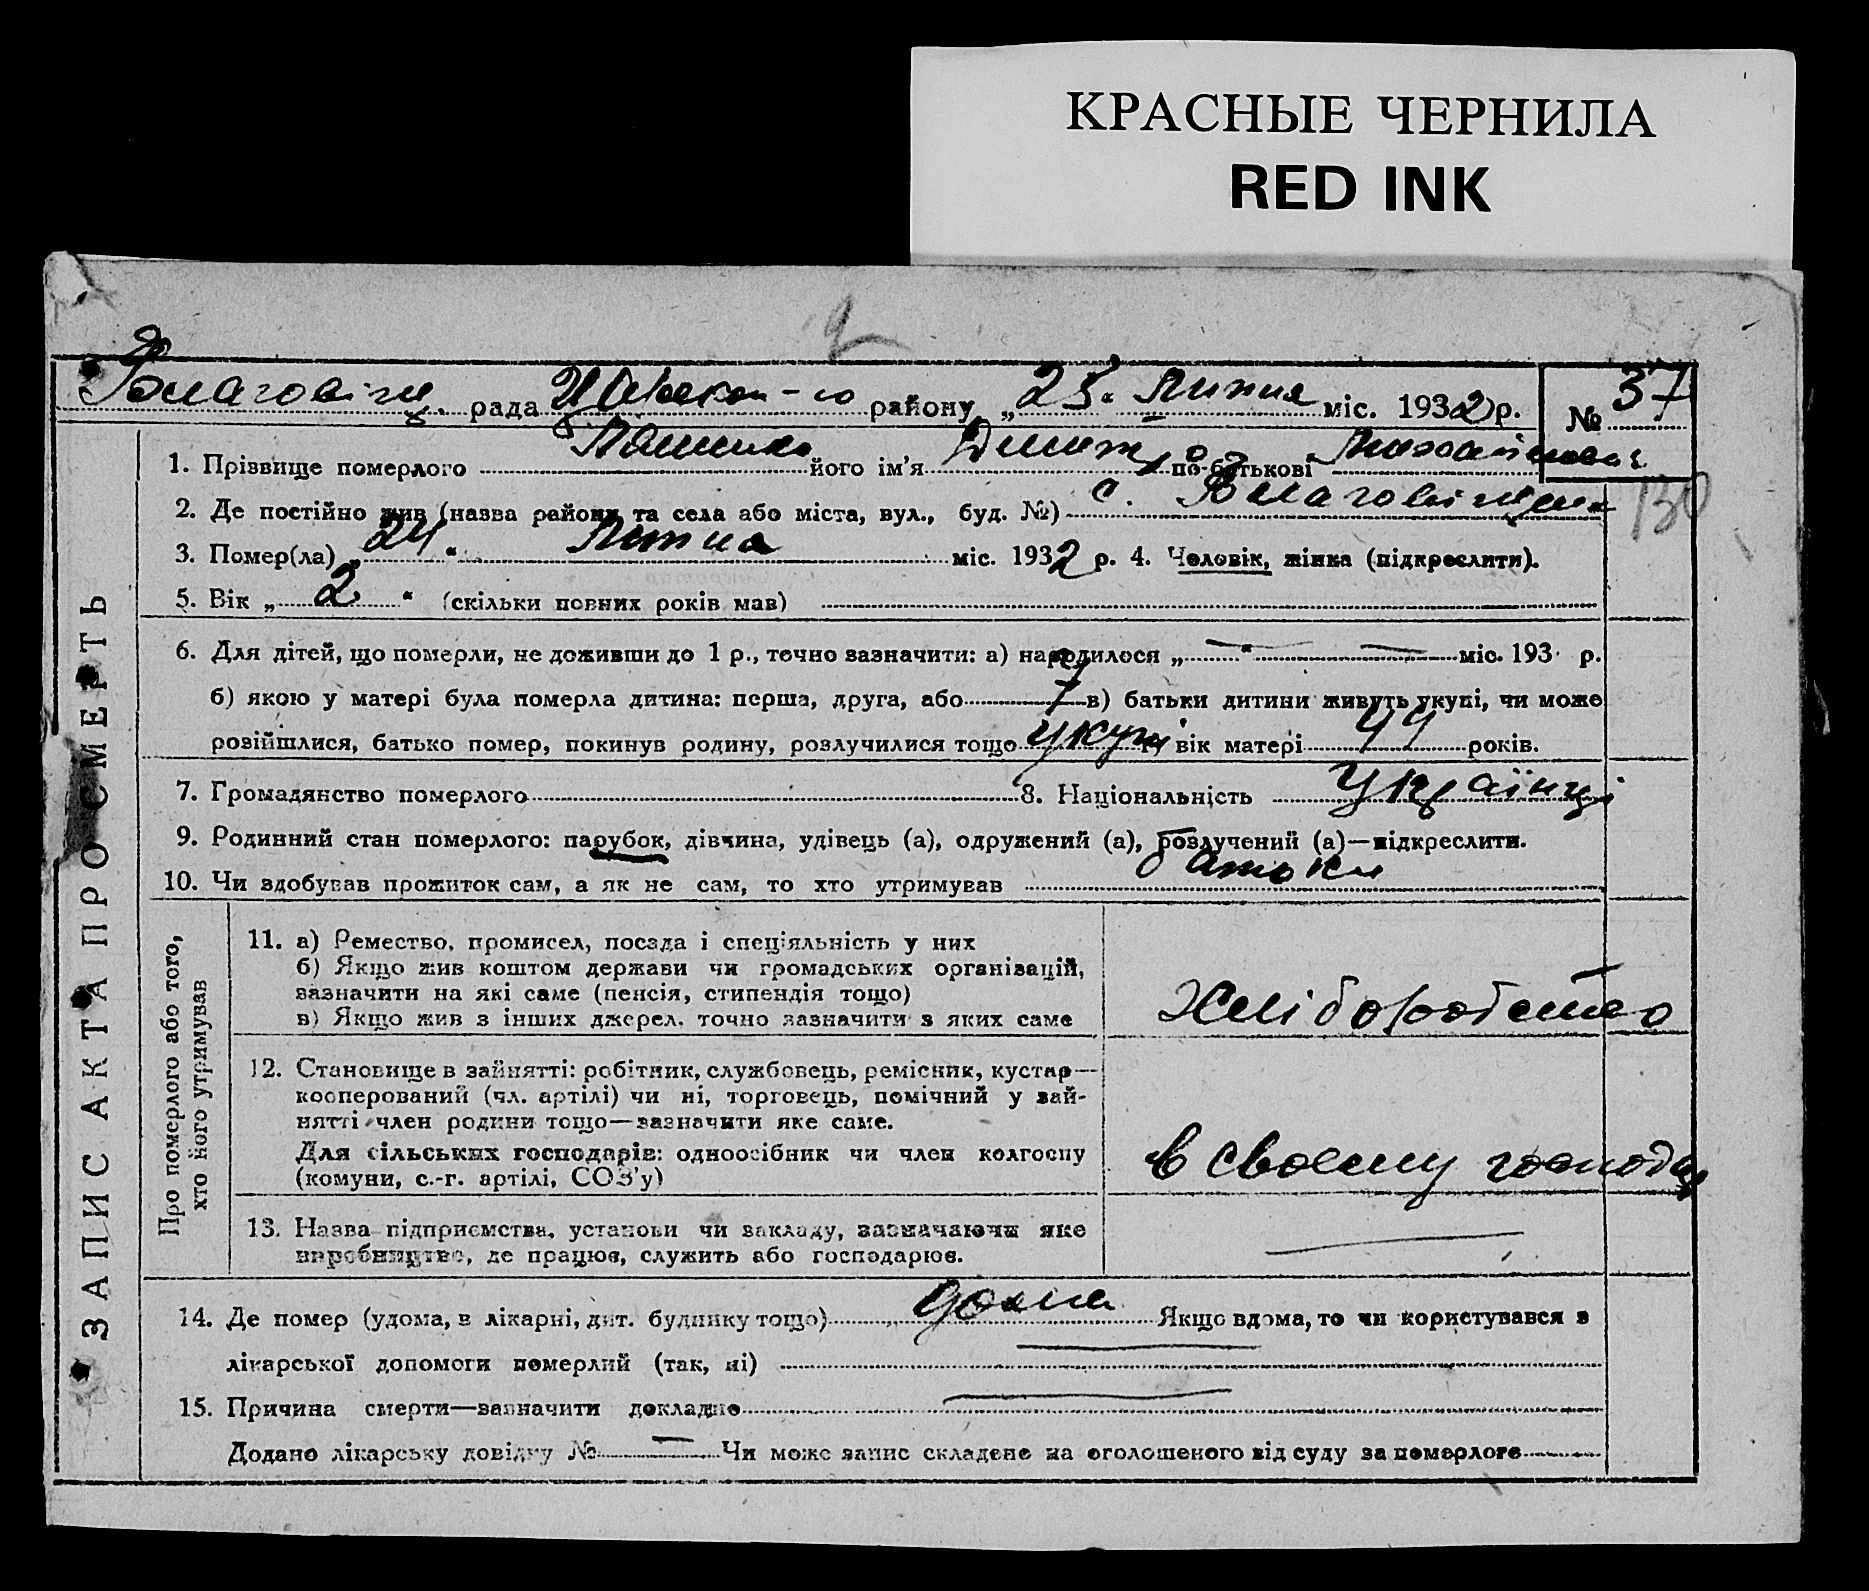 КРАСНЫЕ ЧЕРНИЛА
RED INK
Благовіщ. рада району „25“ Липня міс. 1932 р. № 37
1. Прізвище померлого його ім'я Дмитро по-батькові
130
2. Де постійно жив (назва району та села або міста, вул., буд. №) с. Благовіщенка
3. Помер(ла) „24“ Липня міс. 1932 р. 4. Чоловік, жінка (підкреслити).
5. Вік „2“ (скільки повних років мав)
6. Для дітей, що померли, не доживши до 1 р., точно зазначити: а) народилося „—“ — міс. 193 р.
б) якою у матері була померла дитина: перша, друга, або 7 в) батьки дитини живуть укупі, чи може
розійшлися, батько помер, покинув родину, розлучилися тощо укупі вік матері 44 років.
7. Громадянство померлого 8. Національність Українці
9. Родинний стан померлого: парубок, дівчина, удівець (а), одружений (а), розлучений (а)—підкреслити.
10. Чи здобував прожиток сам, а як не сам, то хто утримував батьки
ЗАПИС АКТА ПРО СМЕРТЬ
Про померлого або того,
хто його утримував
11. а) Ремество, промисел, посада і спеціяльність у них
б) Якщо жив коштом держави чи громадських організацій,
зазначити на які саме (пенсія, стипендія тощо)
в) Якщо жив з інших джерел, точно зазначити з яких саме
Хліборобство
12. Становище в зайнятті: робітник, службовець, ремісник, кустар—
кооперований (чл. артілі) чи ні, торговець, помічний у зай-
нятті член родини тощо—зазначити яке саме.
Для сільських господарів: одноосібник чи член колгоспу
(комуни, с.-г. артілі, СОЗ'у)
в своему господар
13. Назва підприємства, установи чи закладу, зазначаючи яке
виробництво, де працює, служить або господарює.
—
14. Де помер (удома, в лікарні, дит. будинку тощо) дома Якщо вдома, то чи користувався з
лікарської допомоги померлий (так, ні) —
15. Причина смерти—зазначити докладно —
Додано лікарську довідку № — Чи може запис складено на оголошеного від суду за померлого